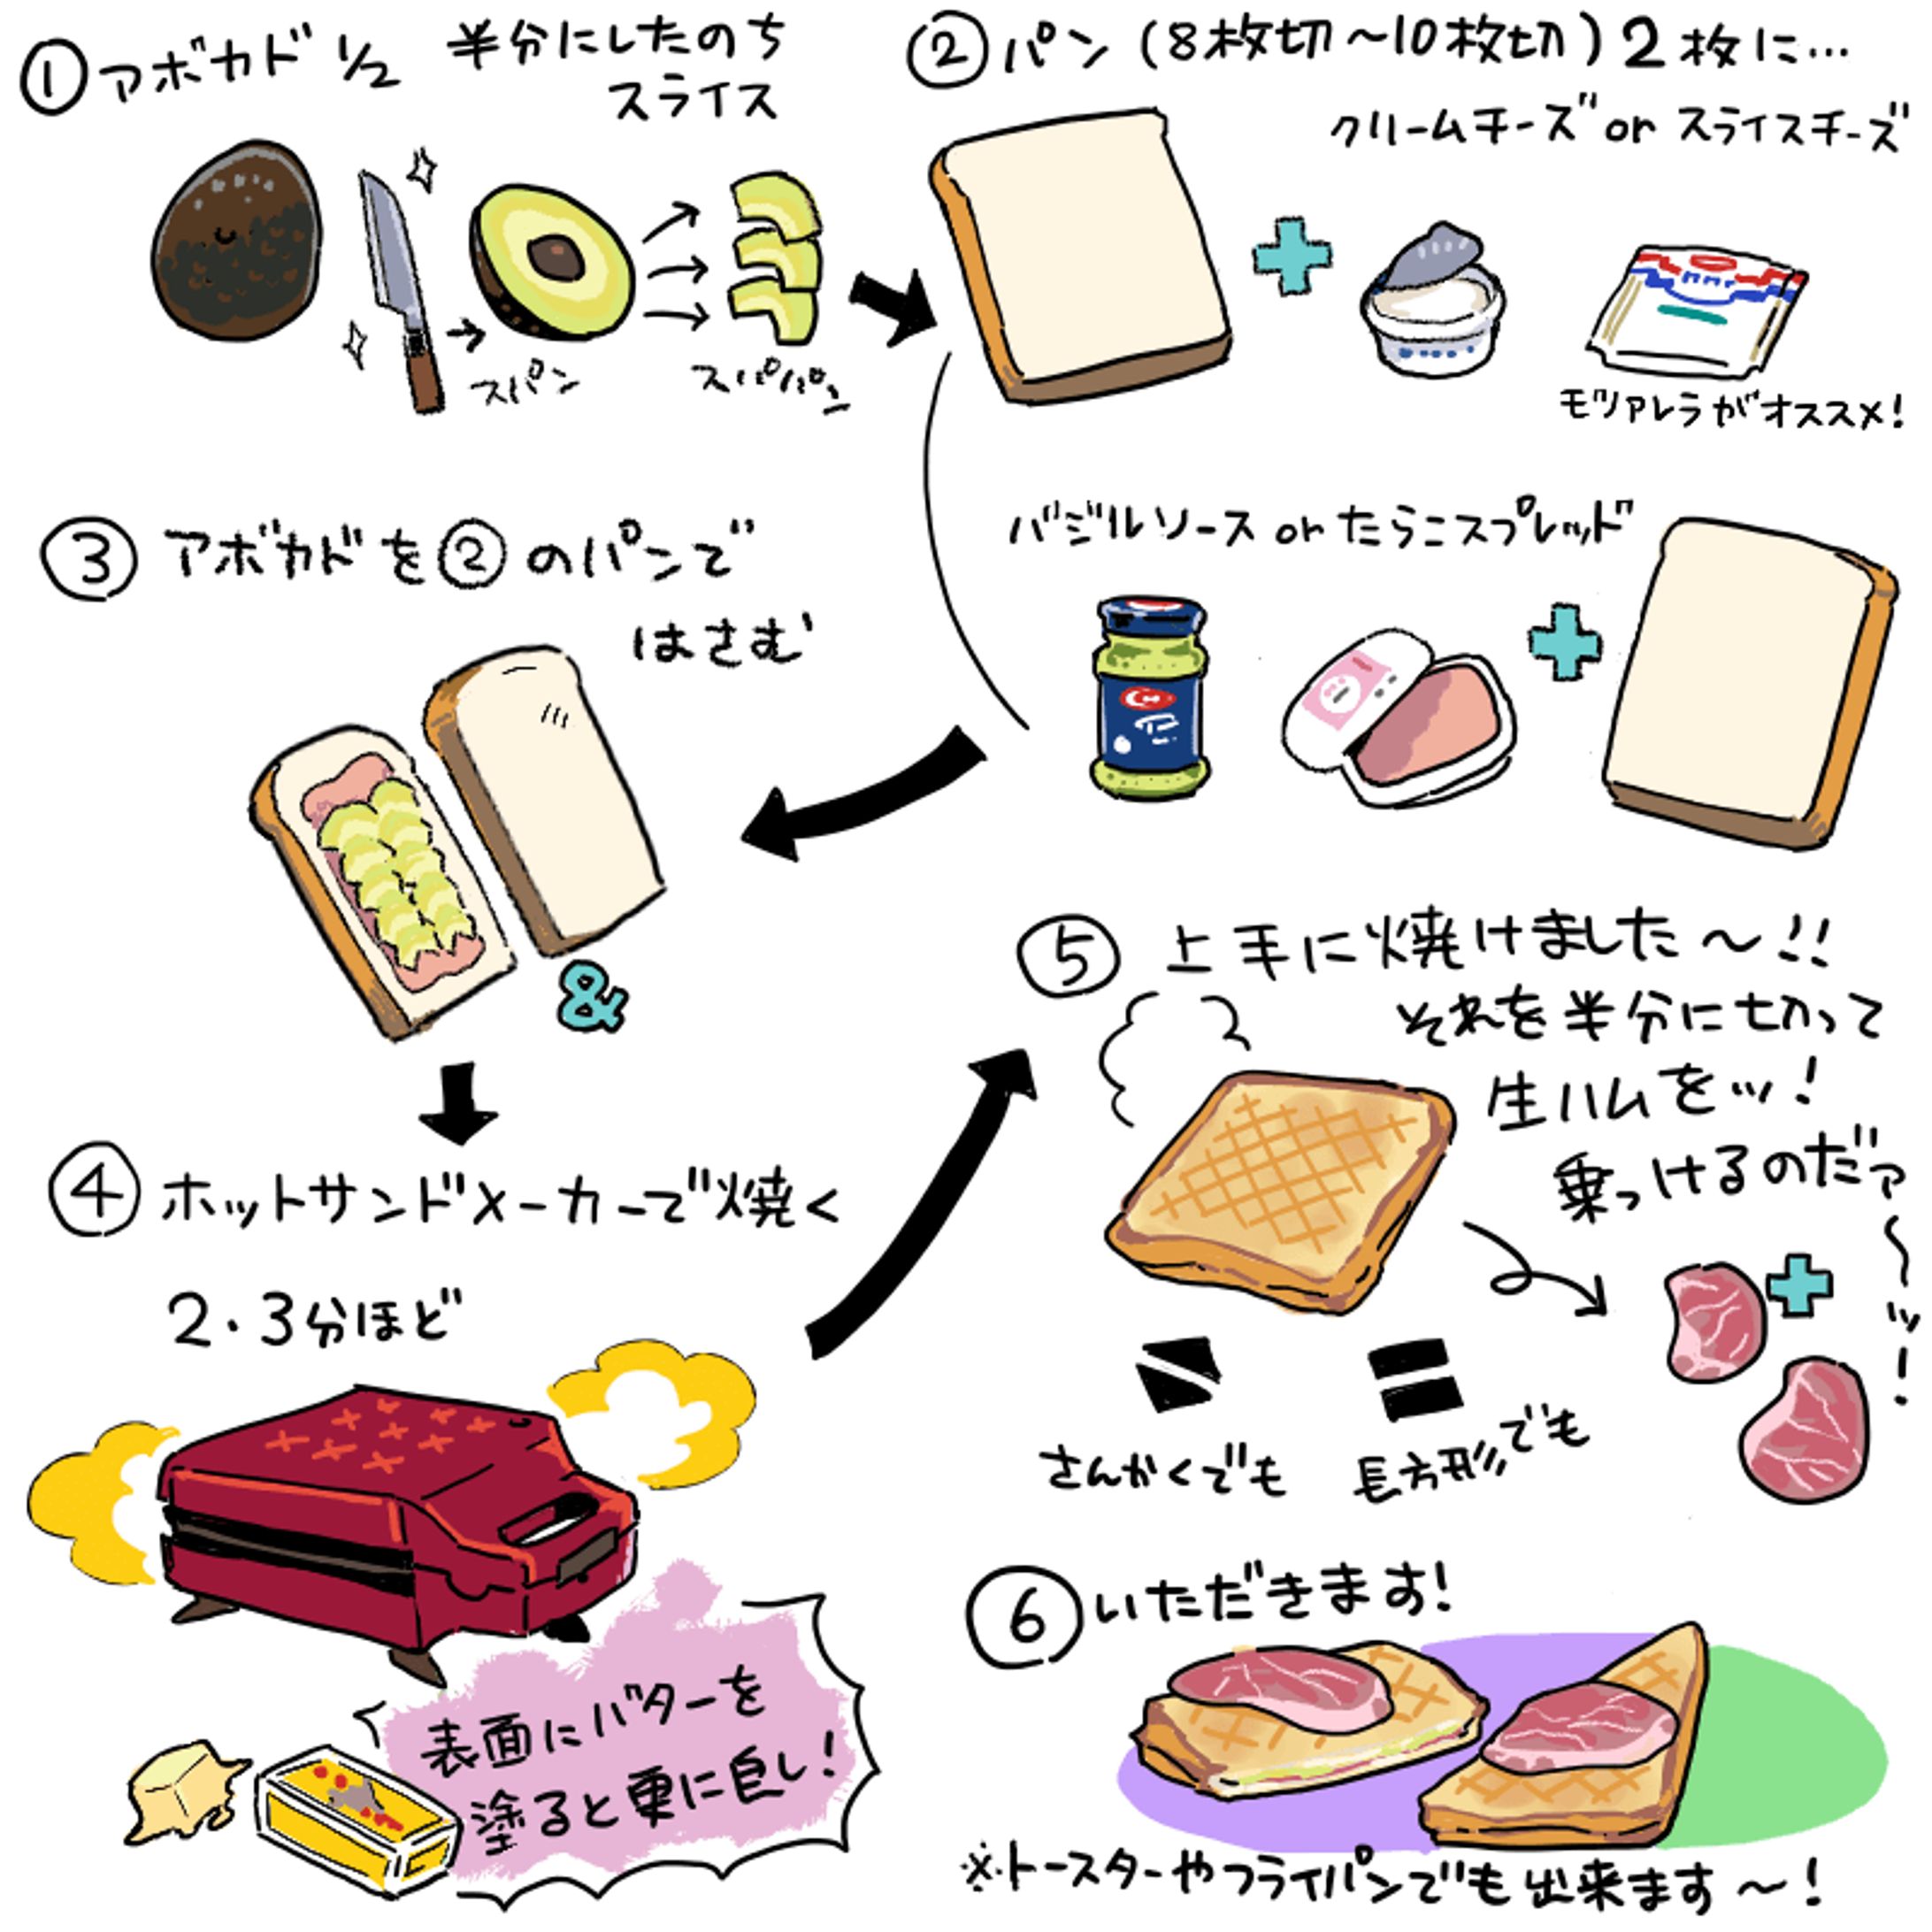 ① アボカド 1/2 半分にしたのち
スライス
スパン
スパパパン
② パン (8枚切〜10枚切) 2枚に…
クリームチーズ or スライスチーズ
モツァレラがオススメ!
バジルソース or たらこスプレッド
③ アボカドを②のパンで
はさむ
&
④ ホットサンドメーカーで焼く
2・3分ほど
表面にバターを
塗ると更に良し!
⑤ 上手に焼けました〜!!
それを半分に切って
生ハムをッ!
乗っけるのだァ〜ッ!
さんかくでも
長方形でも
⑥ いただきます!
※トースターやフライパンでも出来ます〜!